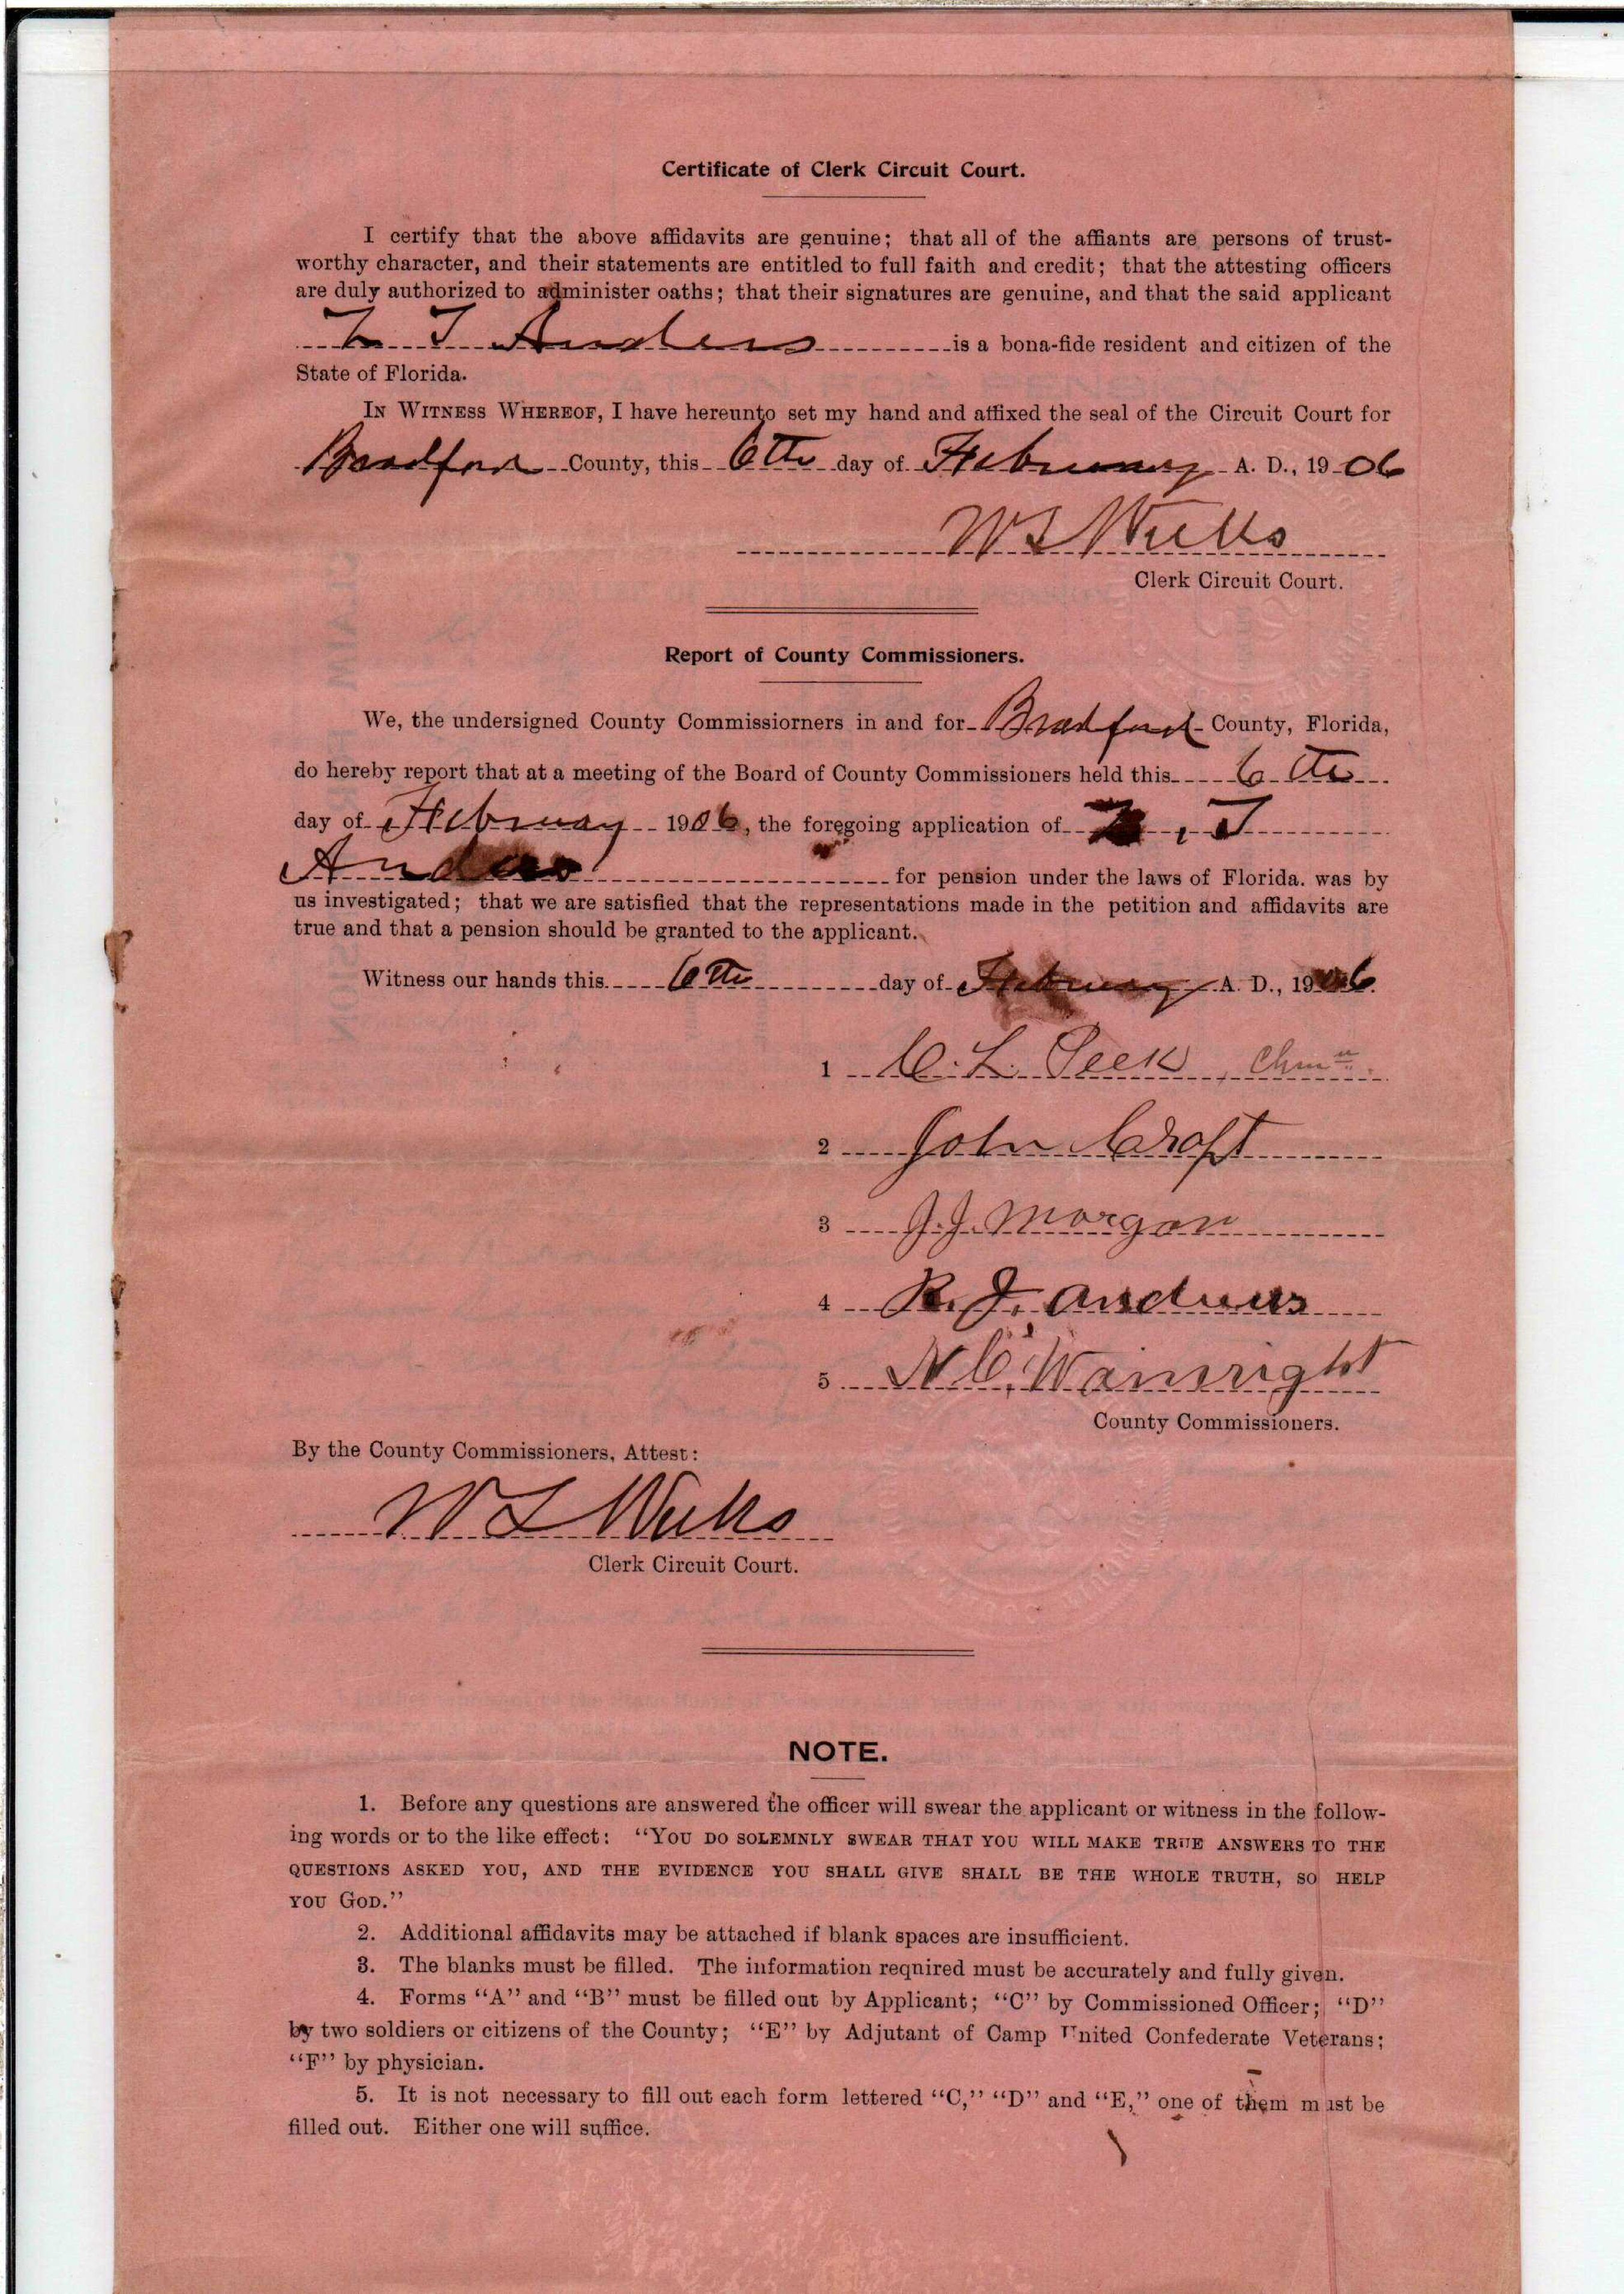 Certificate of Clerk Circuit Court.
I certify that the above affidavits are genuine; that all of the affiants are persons of trust-
worthy character, and their statements are entitled to full faith and credit; that the attesting officers
are duly authorized to administer oaths; that their signatures are genuine, and that the said applicant
T Anders is a bona-fide resident and citizen of the
State of Florida.
IN WITNESS WHEREOF, I have hereunto set my hand and affixed the seal of the Circuit Court for
Bradford County, this 6th day of February A. D., 1906
W L Weeks
Clerk Circuit Court.
Report of County Commissioners.
We, the undersigned County Commissiorners in and for Bradford County, Florida,
do hereby report that at a meeting of the Board of County Commissioners held this 6th
day of February 1906, the foregoing application of T
Anders for pension under the laws of Florida. was by
us investigated; that we are satisfied that the representations made in the petition and affidavits are
true and that a pension should be granted to the applicant.
Witness our hands this 6th day of February A. D., 1906.
1 C. L. Peek, Chmn
2 John Croft
3 J. J. Morgan
4 R. J. Andrews
5 N C. Wainright
County Commissioners.
By the County Commissioners, Attest:
W L Weeks
Clerk Circuit Court.
NOTE.
1. Before any questions are answered the officer will swear the applicant or witness in the follow-
ing words or to the like effect: "YOU DO SOLEMNLY SWEAR THAT YOU WILL MAKE TRUE ANSWERS TO THE
QUESTIONS ASKED YOU, AND THE EVIDENCE YOU SHALL GIVE SHALL BE THE WHOLE TRUTH, SO HELP
YOU GOD."
2. Additional affidavits may be attached if blank spaces are insufficient.
3. The blanks must be filled. The information reqnired must be accurately and fully given.
4. Forms "A" and "B" must be filled out by Applicant; "C" by Commissioned Officer; "D"
by two soldiers or citizens of the County; "E" by Adjutant of Camp United Confederate Veterans;
"F" by physician.
5. It is not necessary to fill out each form lettered "C," "D" and "E," one of them must be
filled out. Either one will suffice.